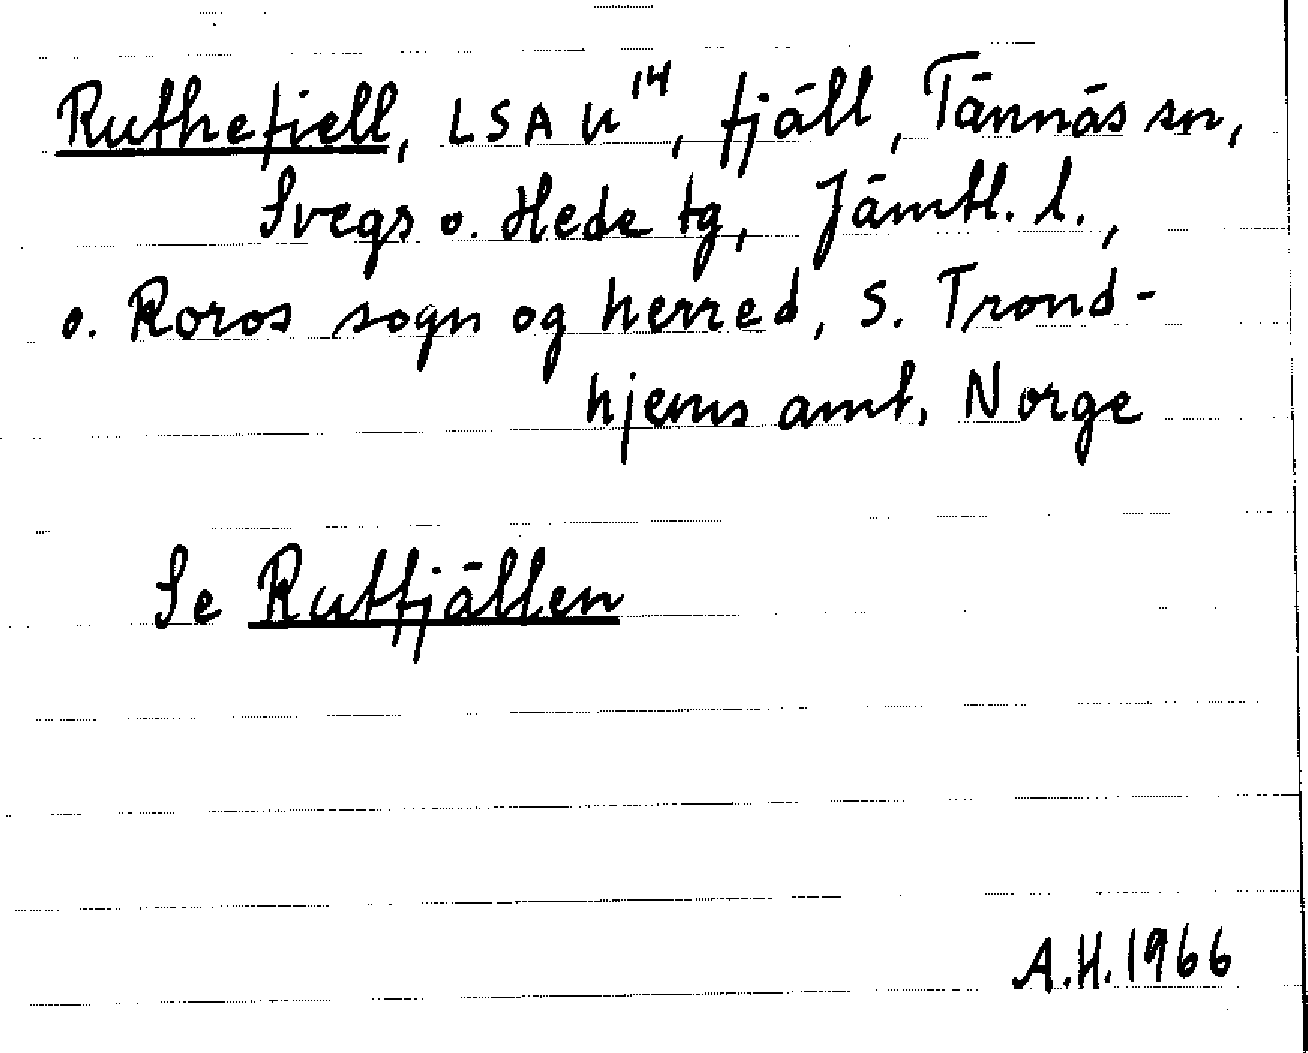 Ruthefiell, LSA U¹⁴, fjäll, Tännäs sn,
Svegs o. Hede tg, Jämtl. l.,
o. Roros sogn og herred, S. Trond-
hjems amt. Norge
Se Rutfjällen
A.H. 1966